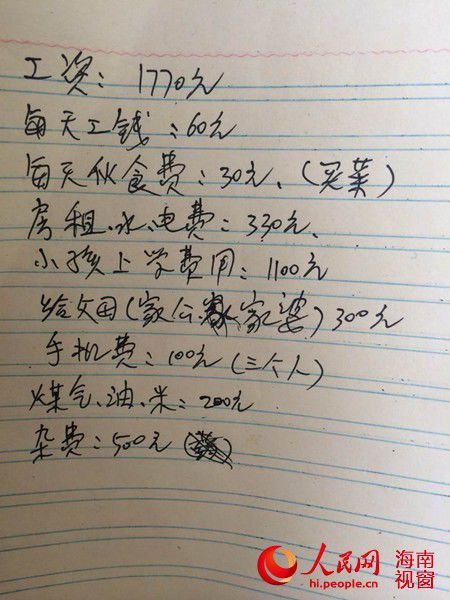 工资：1770元
每天工钱：60元
每天伙食费：30元、（买菜）
房租、水、电费：330元、
小孩上学费用：1100元
给父母（家公家婆）300元
手机费：100元（三个人）
煤气、油、米：200元
杂费：500元
人民网 海南视窗
hi.people.cn